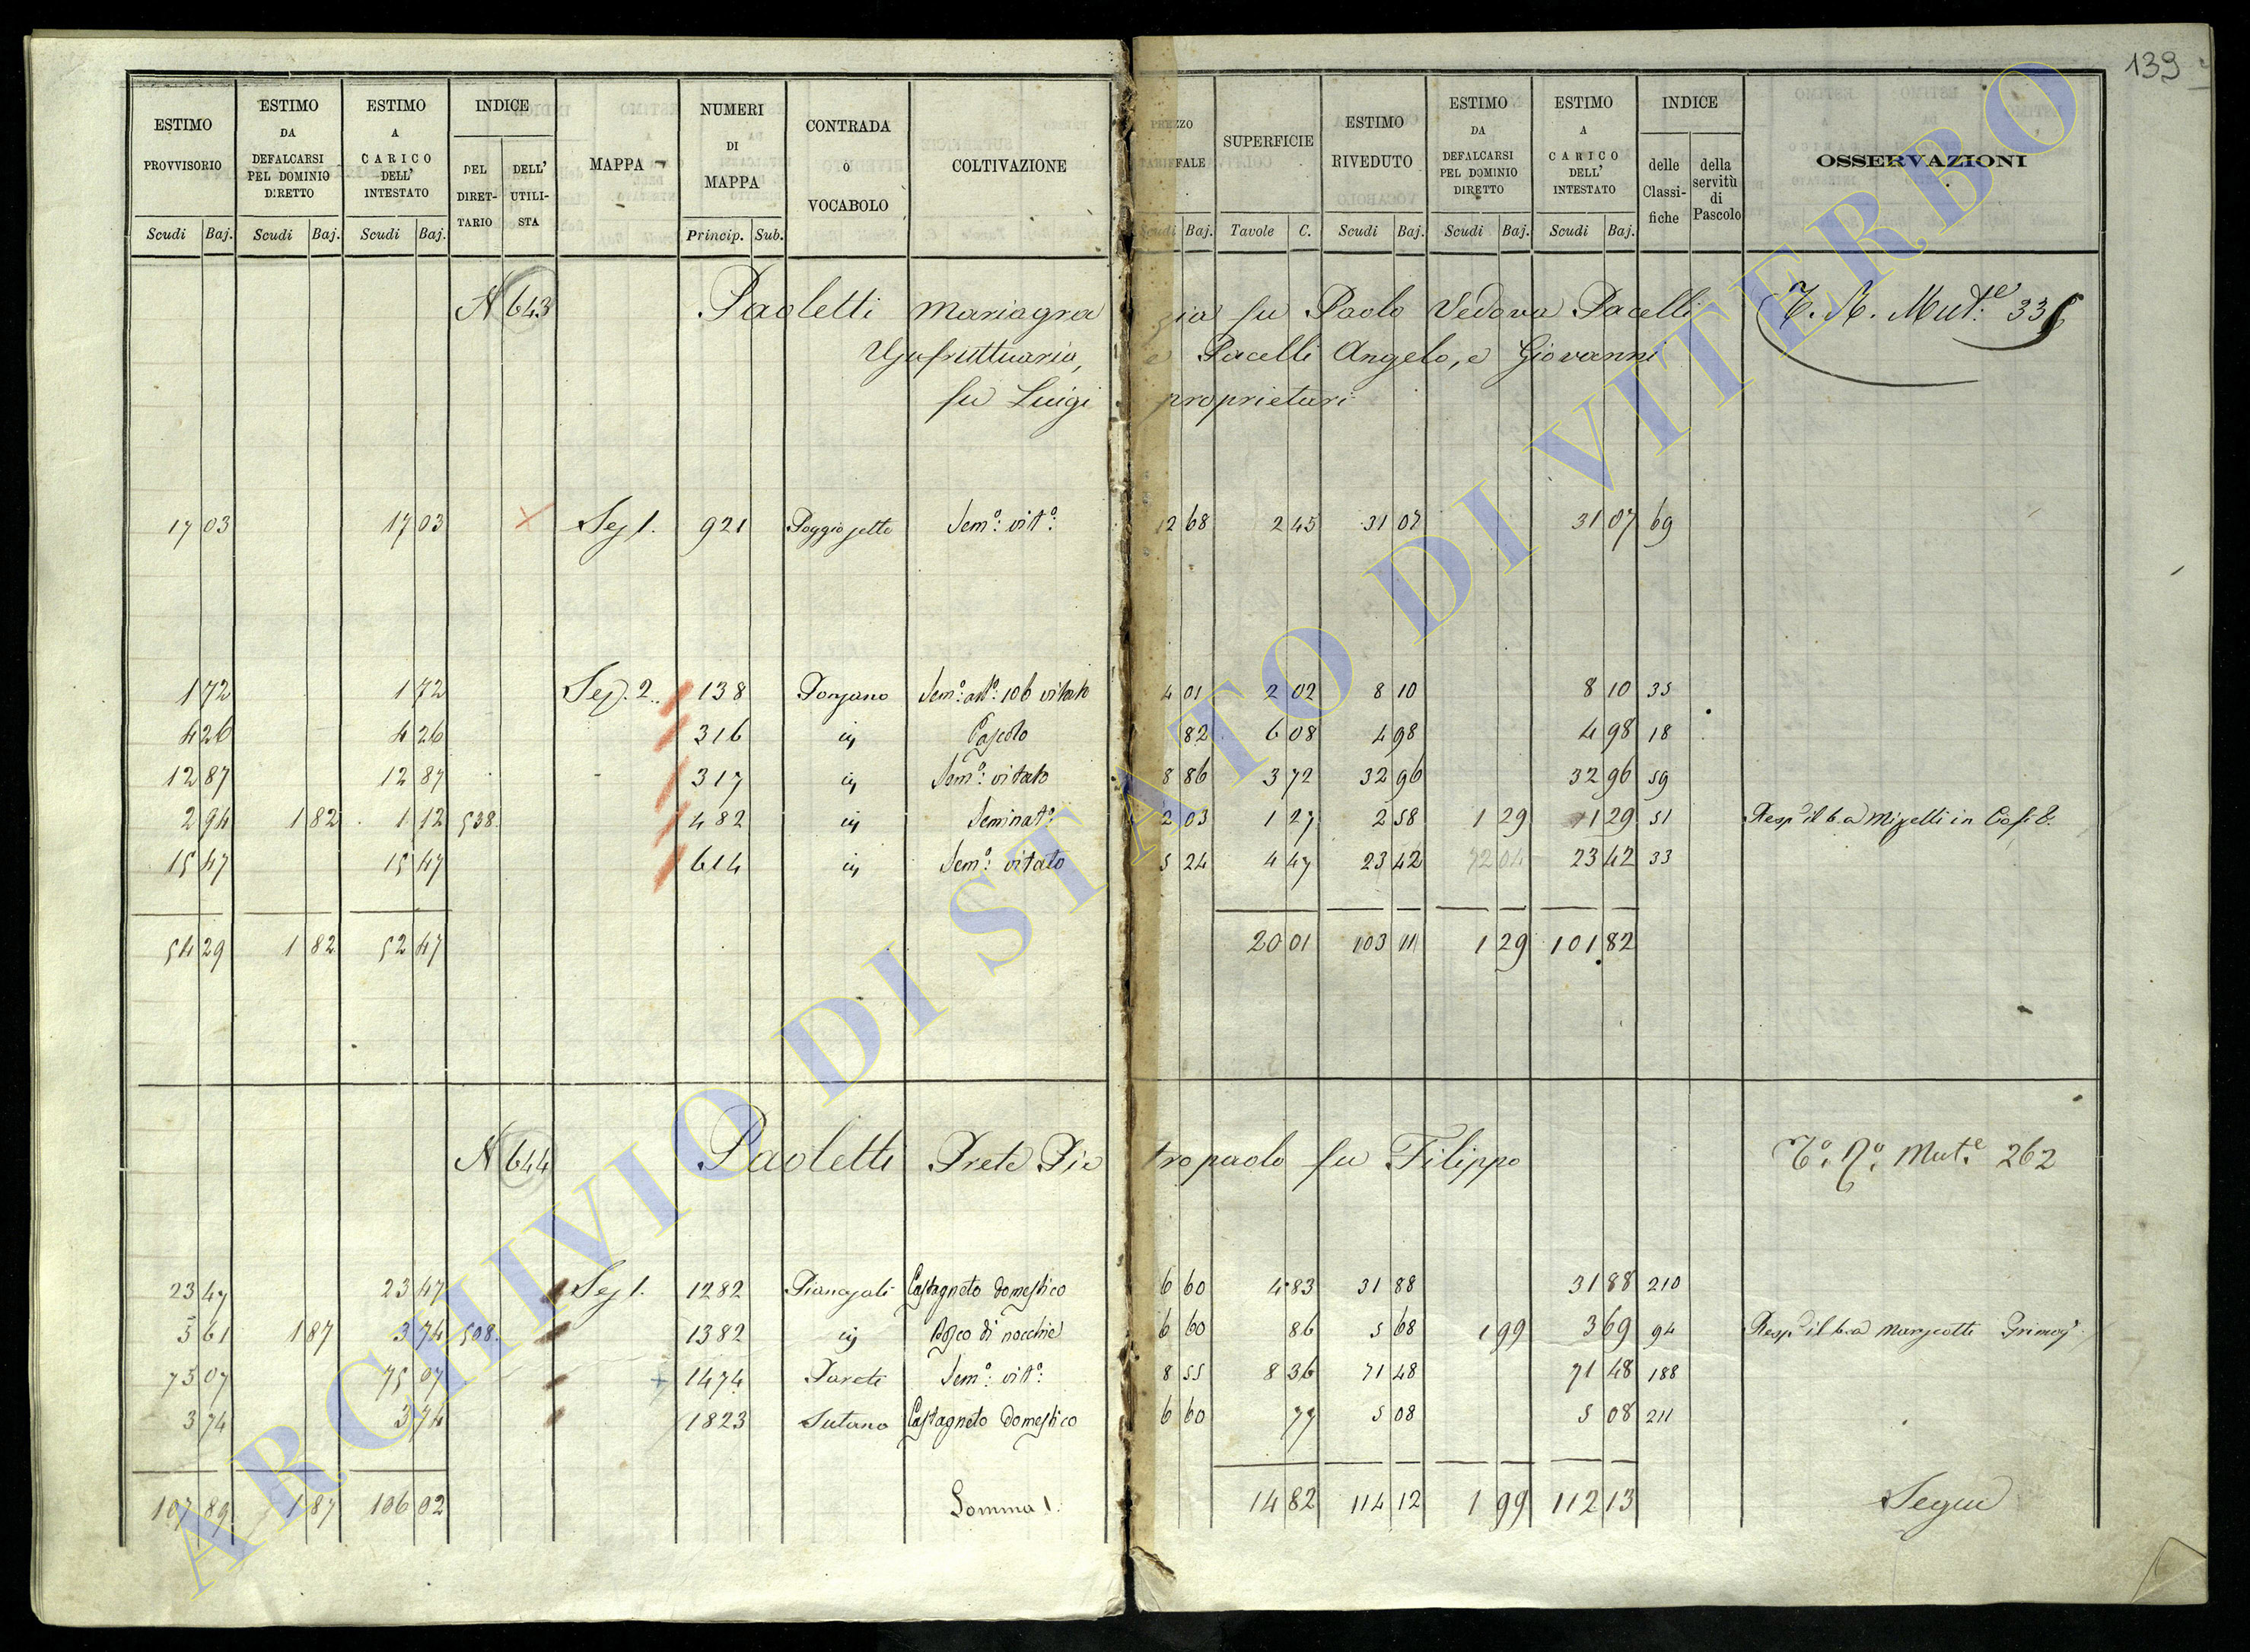 139
ESTIMO PROVVISORIO Scudi Baj. ESTIMO DA DEFALCARSI PEL DOMINIO DIRETTO Scudi Baj. ESTIMO A CARICO DELL' INTESTATO Scudi Baj. INDICE DEL DIRETTARIO DELL' UTILISTA MAPPA NUMERI DI MAPPA Princip. Sub. CONTRADA o VOCABOLO COLTIVAZIONE PREZZO TARIFFALE Scudi Baj. SUPERFICIE Tavole C. ESTIMO RIVEDUTO Scudi Baj. ESTIMO DA DEFALCARSI PEL DOMINIO DIRETTO Scudi Baj. ESTIMO A CARICO DELL' INTESTATO Scudi Baj. INDICE delle Classifiche della servitù di Pascolo OSSERVAZIONI
N 643 Paoletti Mariagrazia fu Paolo Vedova Pacelli
Usufruttuaria, e Pacelli Angelo, e Giovanni
fu Luigi proprietari
17 03 17 03 Sez 1. 921 Sem.º: vit.º: 12 68 2 45 31 07 31 07 69
1 72 1 72 Sez. 2. 138 Sem.º: vitato 4 01 2 02 8 10 8 10 35
4 26 4 26 316 Pascolo 82 6 08 4 98 4 98 18
12 87 12 87 317 Sem.º: vitato 8 86 3 72 32 96 32 96 59
2 94 1 82 1 12 538. 482 Seminat.º 2 03 1 27 2 58 1 29 1 29 51
15 47 15 47 614 Sem.º: vitato 5 24 4 47 23 42 23 42 33
54 29 1 82 52 47 20 01 103 11 1 29 101 82
N 644 Paoletti Prete Pietropaolo fu Filippo Mut.e 262
23 47 23 47 Sez 1. 1282 Castagneto domestico 6 60 4 83 31 88 31 88 210
5 61 1 87 3 74 508. 1382 Bosco di nocchie 6 60 86 5 68 1 99 3 69 94
75 07 75 07 1474 Parete Sem.º: vit.º: 8 55 8 36 71 48 71 48 188
3 74 3 74 1823 Sutano Castagneto domestico 6 60 77 5 08 5 08 211
107 89 1 87 106 02 Somma 1. 14 82 114 12 1 99 112 13 Segue
ARCHIVIO DI STATO DI VITERBO